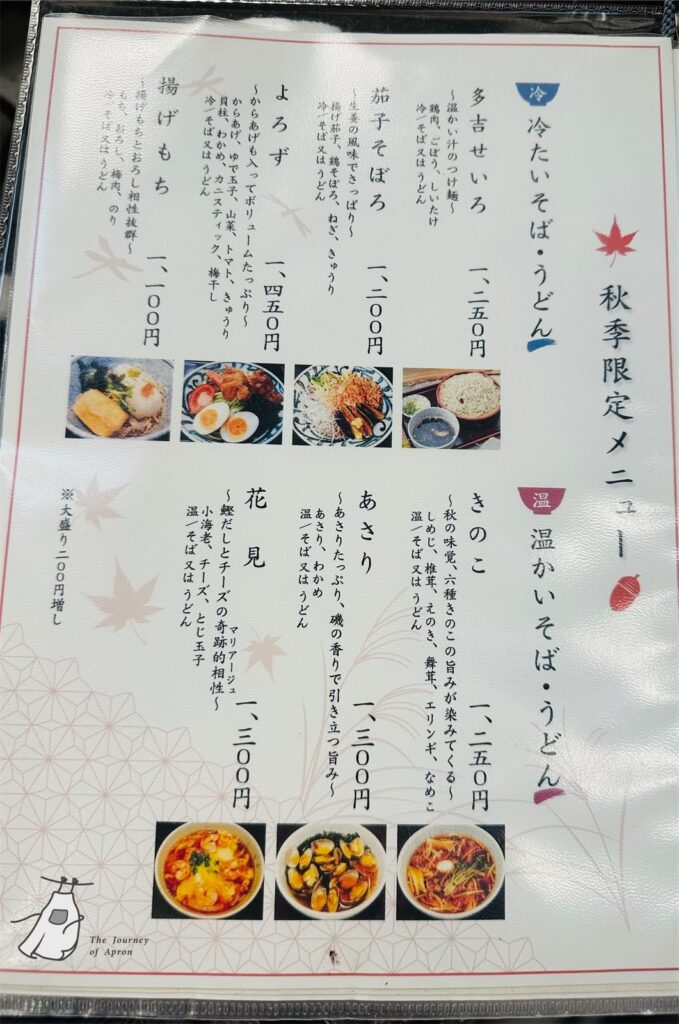 秋季限定メニュー
冷
冷たいそば・うどん
多吉せいろ
一、二五〇円
~温かい汁のつけ麺~
鶏肉、ごぼう、しいたけ
冷/そば又はうどん
茄子そぼろ
一、二〇〇円
~生姜の風味でさっぱり~
揚げ茄子、鶏そぼろ、ねぎ、きゅうり
冷/そば又はうどん
よろず
一、四五〇円
~からあげも入ってボリュームたっぷり~
からあげ、ゆで玉子、山菜、トマト、きゅうり
貝柱、わかめ、カニスティック、梅干し
冷/そば又はうどん
揚げもち
一、一〇〇円
~揚げもちとおろし相性抜群~
もち、おろし、梅肉、のり
冷/そば又はうどん
温
温かいそば・うどん
きのこ
一、二五〇円
~秋の味覚、六種きのこの旨みが染みてくる~
しめじ、椎茸、えのき、舞茸、エリンギ、なめこ
温/そば又はうどん
あさり
一、三〇〇円
~あさりたっぷり、磯の香りで引き立つ旨み~
あさり、わかめ
温/そば又はうどん
花見
一、三〇〇円
マリアージュ
~鰹だしとチーズの奇跡的相性~
小海老、チーズ、とじ玉子
温/そば又はうどん
※大盛り二〇〇円増し
The Journey
of Apron